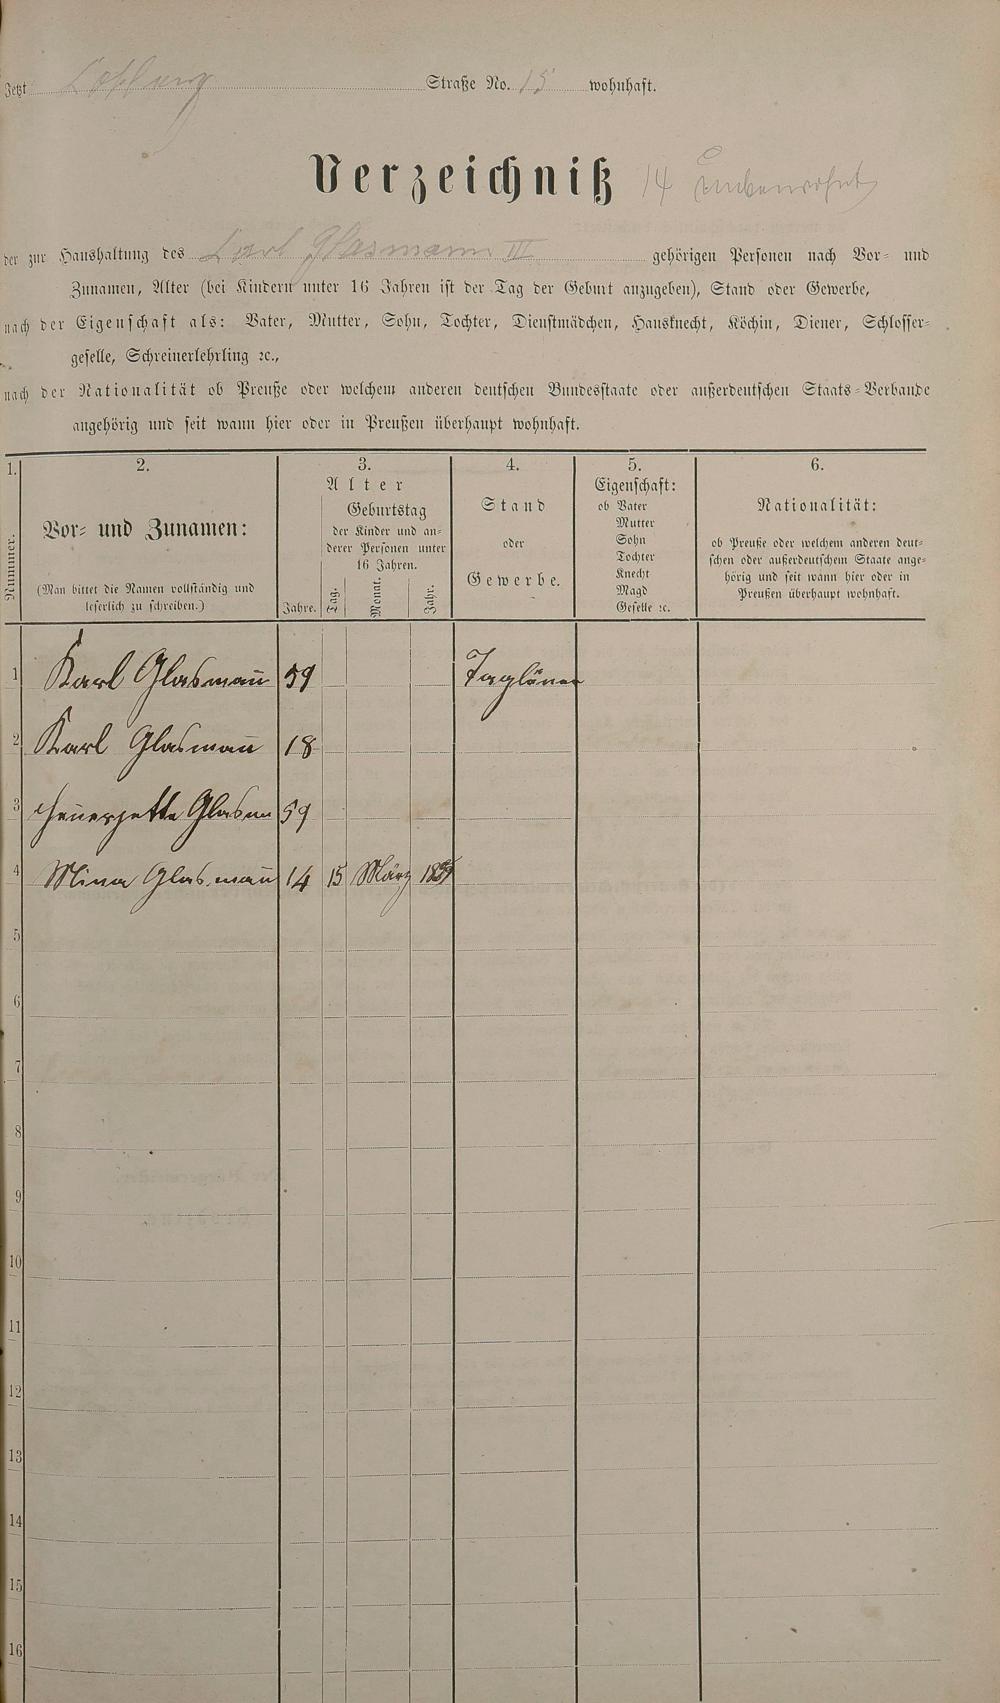 Jetzt Straße No. 15 wohnhaft.
Verzeichniß 14 unbewohnt
der zur Haushaltung des Karl Glasmann III gehörigen Personen nach Vor- und
Zunamen, Alter (bei Kindern unter 16 Jahren ist der Tag der Geburt anzugeben), Stand oder Gewerbe,
nach der Eigenschaft als: Vater, Mutter, Sohn, Tochter, Dienstmädchen, Hausknecht, Köchin, Diener, Schlosser-
geselle, Schreinerlehrling ꝛc.,
nach der Nationalität ob Preuße oder welchem anderen deutschen Bundesstaate oder außerdeutschen Staats-Verbande
angehörig und seit wann hier oder in Preußen überhaupt wohnhaft.
1.
Nummer.
2.
Vor- und Zunamen:
(Man bittet die Namen vollständig und
leserlich zu schreiben.)
3.
Alter
Jahre.
Geburtstag
der Kinder und an-
derer Personen unter
16 Jahren.
Tag.
Monat.
Jahr.
4.
Stand
oder
Gewerbe.
5.
Eigenschaft:
ob Vater
Mutter
Sohn
Tochter
Knecht
Magd
Geselle ꝛc.
6.
Nationalität:
ob Preuße oder welchem anderen deut-
schen oder außerdeutschem Staate ange-
hörig und seit wann hier oder in
Preußen überhaupt wohnhaft.
1 Karl Glasman̄ 59 Taglöner
2 Karl Glasman̄ 18
3 59
4 Mina Glasman̄ 14 15 März
5
6
7
8
9
10
11
12
13
14
15
16